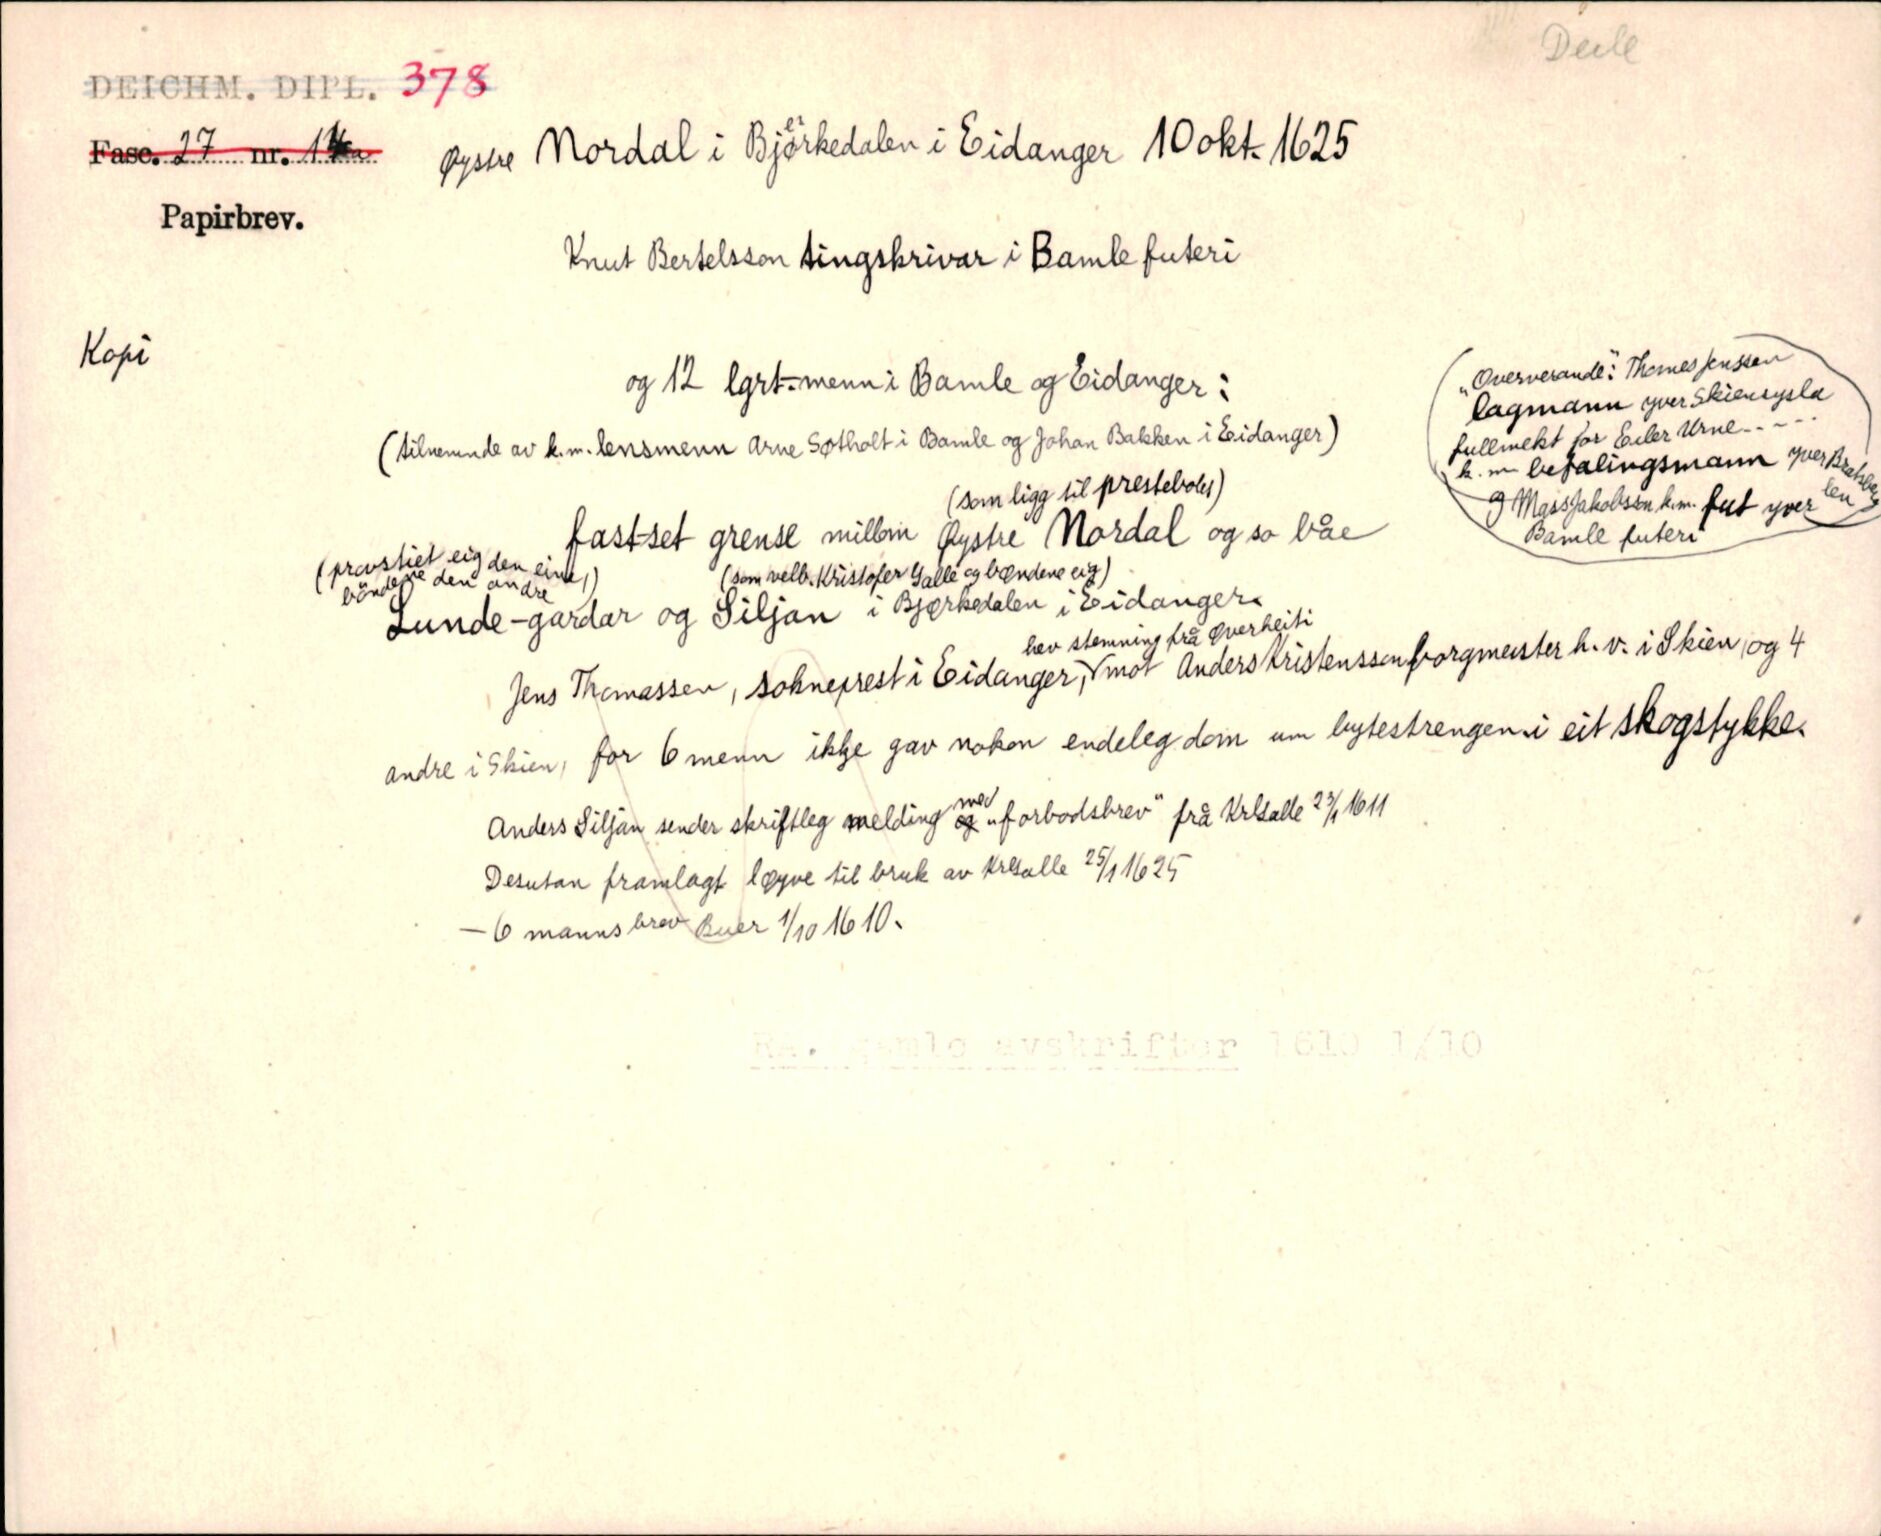 Deile
DEICHM. DIPL. 378
Fasc. 27 nr. 14a
Papirbrev.
Øystre Nordal i Bjørkedalen i Eidanger 10 okt. 1625
Knut Bertelsson tingskrivar i Bamle futeri
Kopi
og 12 lgrt.menn i Bamle og Eidanger:
(tilnemnde av k.m. lensmenn Arne Søtholt i Bamle og Johan Bakken i Eidanger)
("Oververande": Thomes Jenssen
lagmann yver Skiensysla
fullmekt for Eiler Urne -----
k.m. befalingsmann yver Bratsberg
len
og Mass Jakobsson k.m. fut yver
Bamle futeri
(som ligg til prestebolet)
fastset grense millom Øystre Nordal og so båe
(provstiet eig den eine,
böndene den andre)
(som velb. Kristofer Galle og bøndene eig)
Lunde-gardar og Siljan i Bjørkedalen i Eidanger.
hev stemning frå Øverheiti
Jens Thomassen, sokneprest i Eidanger, mot Anders Kristensson borgmeister h. v. i Skien, og 4
andre i Skien, for 6 menn ikkje gav nokon endeleg dom um bytestrengen i eit skogstykke.
med
Anders Siljan sender skriftleg melding og "forbodsbrev" frå Kr Galle 23/1 1611
Desutan framlagt løyve til bruk av Kr Galle 25/1 1625
— 6 manns brev Buer 1/10 1610.
RA. gamle avskrifter 1610 1/10